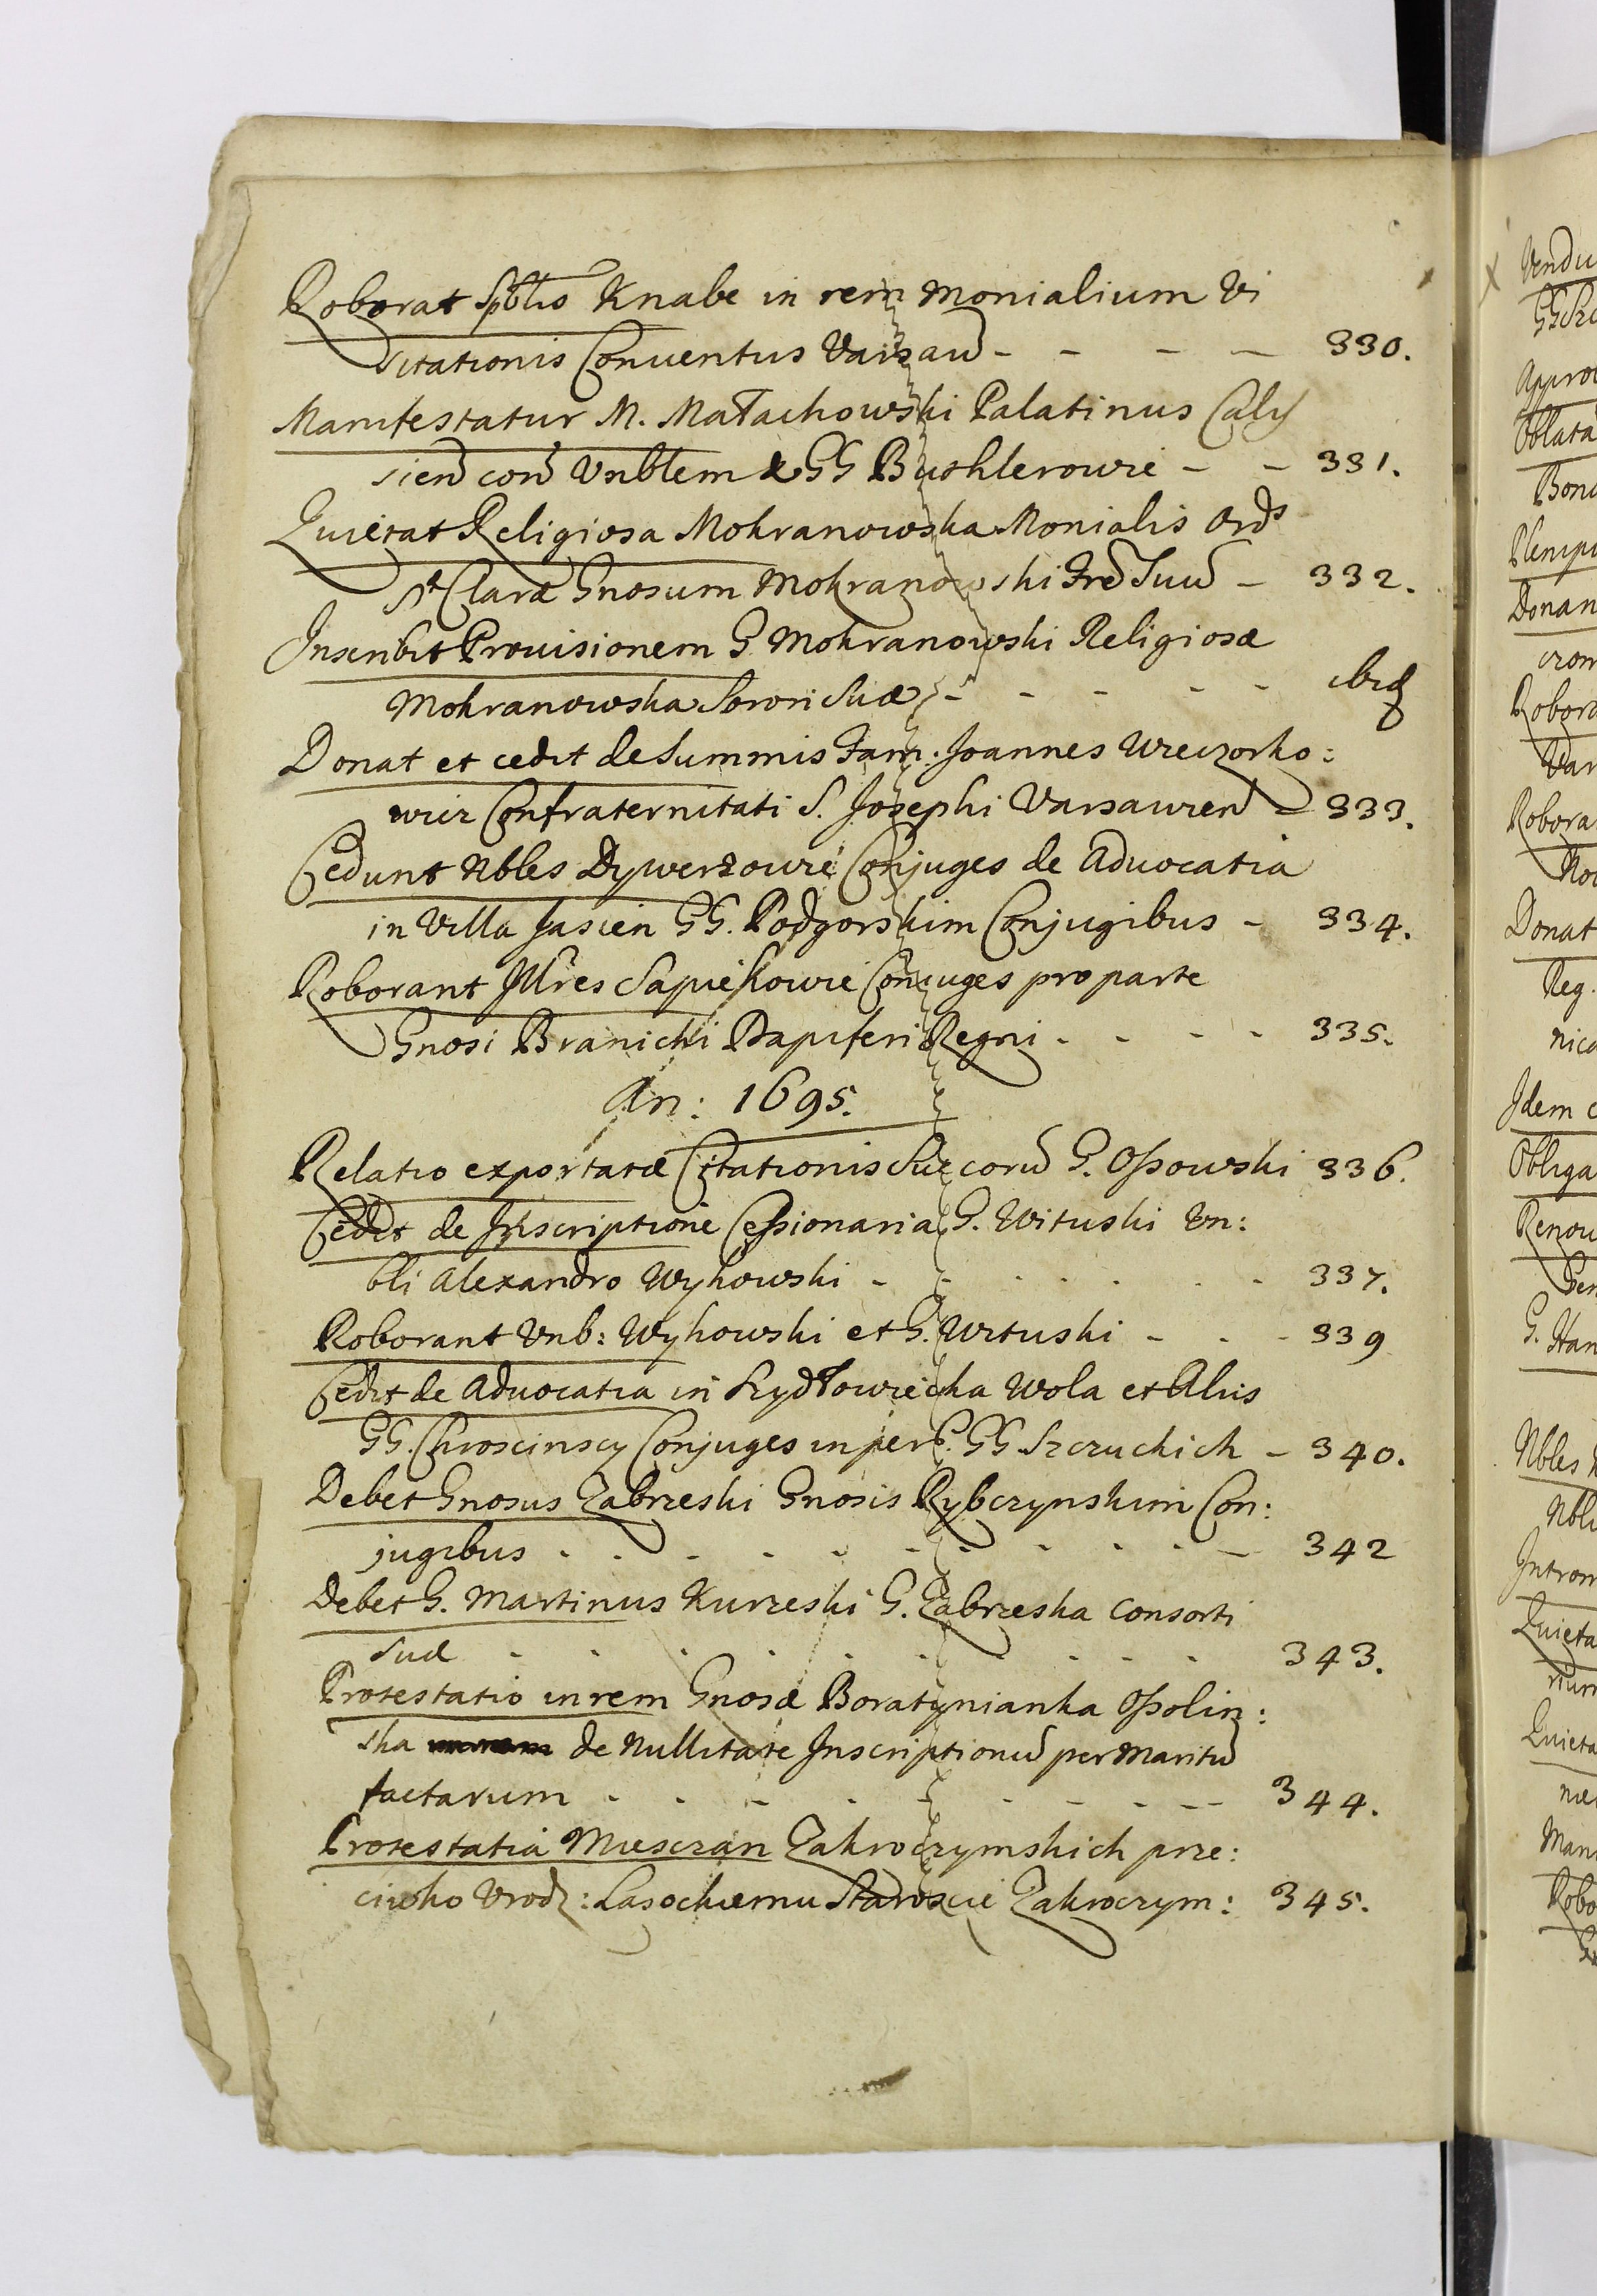 Roborat Spblis Knabe in rem Monialium Vi
sitationis Conventus Varsau̅ - - - - 330.
Manifestatur M. Małachowski Palatinus Caly
sien̅ con̅ Vnblem & GG Bushlerowie - - 331.
Quietat Religiosa Mokranowska Monialis Ords
Stę Claræ Gnosum Mokranowski Fre̅ Suu̅ - 332.
Inscribit Prouisionem G Mokranowski Religiosæ
Mokranowska Sorori Suæ - - - - - ibid
Donat et cedit de Summis Fam: Joannes Wieczorko:
wicz Confraternitati S. Josephi Varsauien̅ - 333.
Cedunt Nbles Dywerzowie Conjuges de Aduocatia
in Villa Jasien GG. Podgorskim Conjugibus - 334.
Roborant Illres Sapiehowie Conjuges pro parte
Gnosi Branicki Dapiferi Regni - - - - 335.
An: 1695.
Relatio exportatæ Citationis Succoru̅ G. Ossowski 336.
Cedit de Inscriptione Cessionaria G. Wituski Vn:
bli Alexandro Wyhowski - - - - - - 337.
Roborant Vnb: Wyhowski et G. Wituski - - - 339
Cedit de Aduocatia in Szydłowiecka Wola et Aliis
GG. Chroscinscy Conjuges in pers. GG Szczuckich - 340.
Debet Gnosus Zabrzeski Gnosis Rybczynskim Con:
jugibus - - - - - - - - - - 342
Debet G. Martinus Kurzeski G. Zabrzeska Consorti
Suæ - - - - - - - - - 343.
Protestatio in rem Gnosæ Boratynianka Ossolin:
ska de Nullitate Inscriptionu̅ per Maritu̅
factarum - - - - - - - - - 344.
Protestatia Mieszczan Zakroczymskich prze:
ciwko Vrodz: Lasockiemu Staroscie Zakroczym: 345.